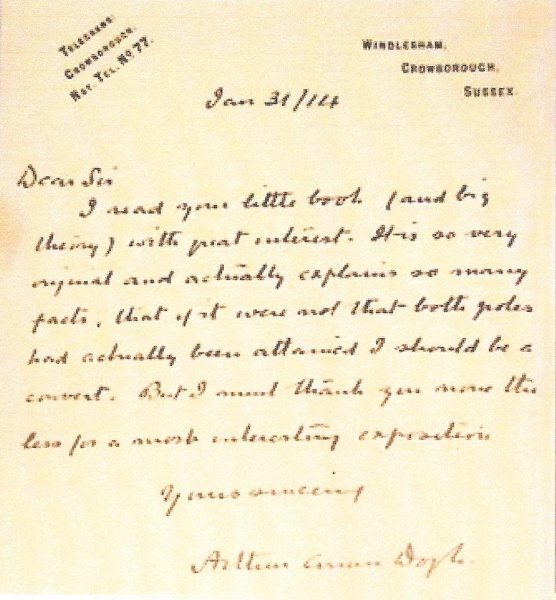 TELEGRAMS:
CROWBOROUGH.
NAT. TEL. No. 77.
WINDLESHAM,
CROWBOROUGH,
SUSSEX.
Jan 31/14
Dear Sir
I read your little book (and big
theory) with great interest. It is so very
original and actually explains so many
facts, that if it were not that both poles
had actually been attained I should be a
convert. But I must thank you none the
less for a most interesting exposition
Yours sincerely
Arthur Conan Doyle.